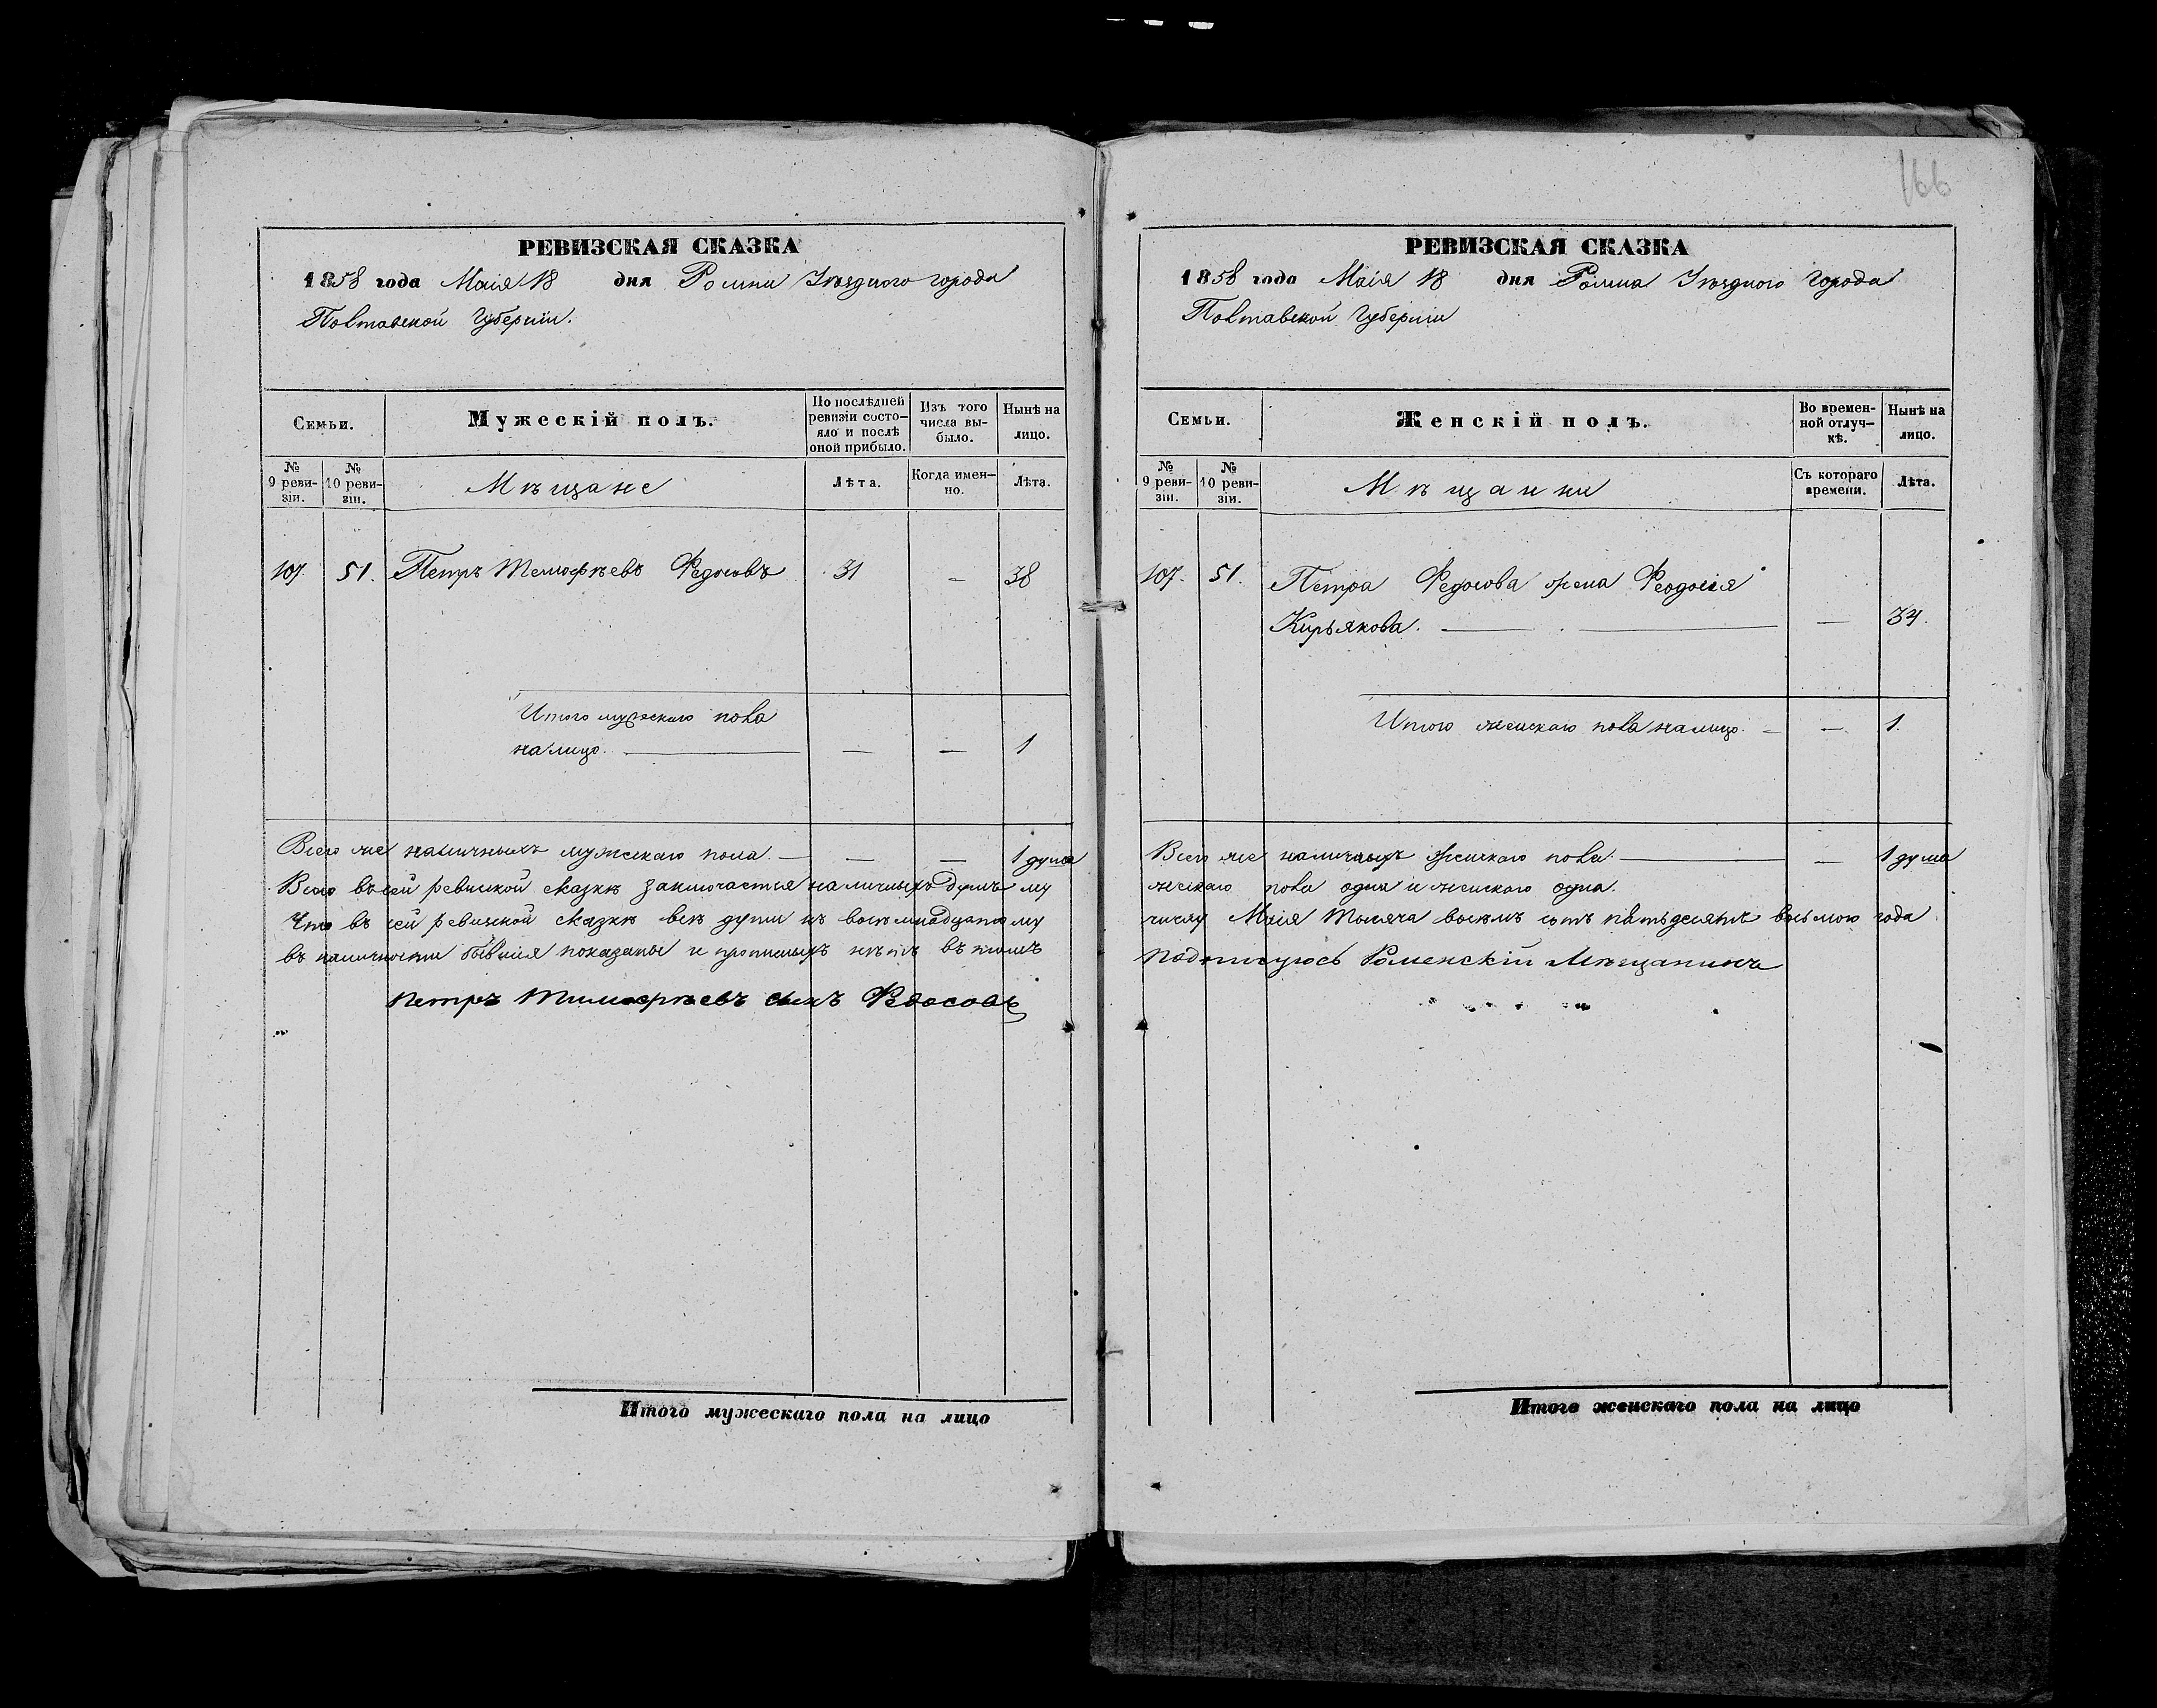 РЕВИЗСКАЯ СКАЗКА
1858 года Маія 18 дня Ромна Уѣзднаго города
Полтавской Губерніи.
Семьи.
Мужескій полъ.
По послѣдней ревизіи состояло и послѣ оной прибыло.
Изъ того числа выбыло.
Нынѣ на лицо.
№ 9 ревизіи.
№ 10 ревизіи.
Мѣщане
Лѣта.
Когда именно.
Лѣта.
107. 51. Петръ Темофѣевъ Федосовъ 31 — 38
Итого мужескаго пола
налицо. — — — 1
Всего же наличныхъ мужскаго пола. — — — 1 душа
Всего въ сей ревизской сказкѣ заключается наличныхъ душъ му
Что въ сей ревизской сказкѣ всѣ души къ восемнадцатому
въ наличности бывшія показаны и прописныхъ нѣтъ въ томъ
Петръ Тимофѣевъ сынъ Федосовъ
Итого мужескаго пола на лицо
166
РЕВИЗСКАЯ СКАЗКА
1858 года Маія 18 дня Ромна Уѣзднаго Города
Полтавской Губерніи
Семьи.
Женскій полъ.
Во временной отлучкѣ.
Нынѣ на лицо.
№ 9 ревизіи.
№ 10 ревизіи.
Мѣщанки
Съ котораго времени.
Лѣта.
107. 51. Петра Федосова жена Феодосія
Кирьякова. — — — 34.
Итого женскаго пола налицо. — — 1.
Всего же наличныхъ женскаго пола. — — 1 душа
жескаго пола одна и женскаго одна.
числу Маія тысяча восемь сотъ пятьдесятъ восьмого года
подписуюсь Роменскій Мѣщанинъ
Итого женскаго пола на лицо